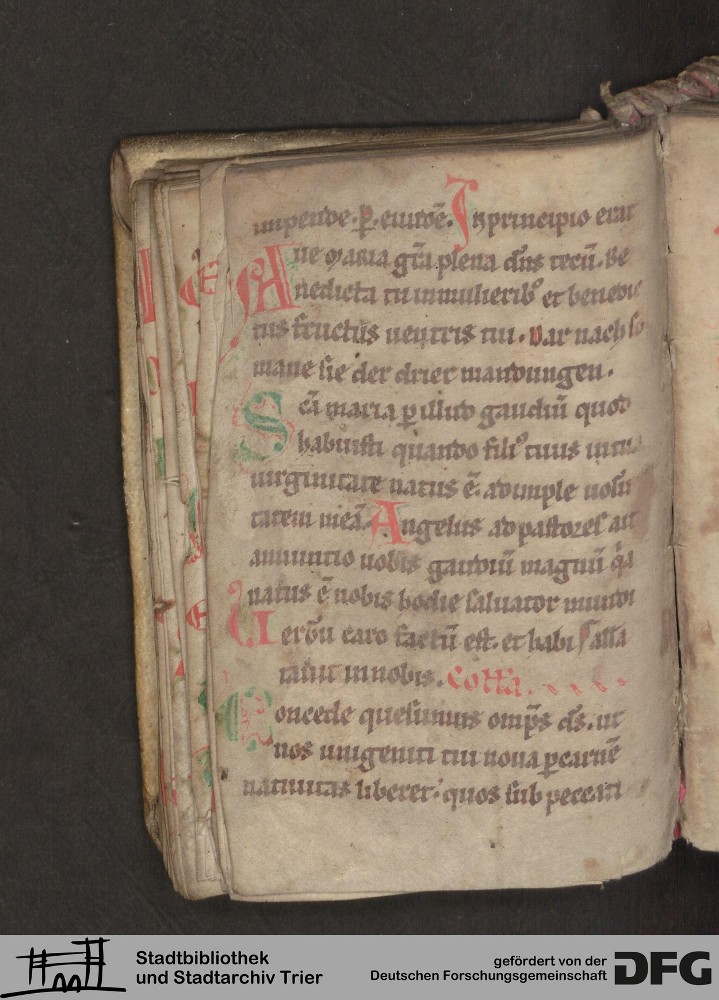 impende·p̱·eiurdē. In principio erat
Aue maria gr̄a plena dn̄s tecū. Be
nedicta tu in mulierib᷒ et benedic
tus fructus uentris tui. Dar nach so
mane sie der drier mandungen.
Sc̄a maria ꝑ illud gaudiū quod
habuisti quando fili᷒ tuus in tua
uirginitate natus ē. adimple uolū
tatem meā. Angelus ad pastores ait
annuntio uobis gaudiū magnū q̄a
natus ē nobis hodie saluator mundi
Uerbū caro factū est. et habi alla
tauit in nobis. Colt̄a.
Concede quesumus omp̄s ds̄. ut
nos unigeniti tui noua ꝑ carnē
natiuitas liberet. quos sub peccati
Stadtbibliothek
und Stadtarchiv Trier
gefördert von der
Deutschen Forschungsgemeinschaft
DFG